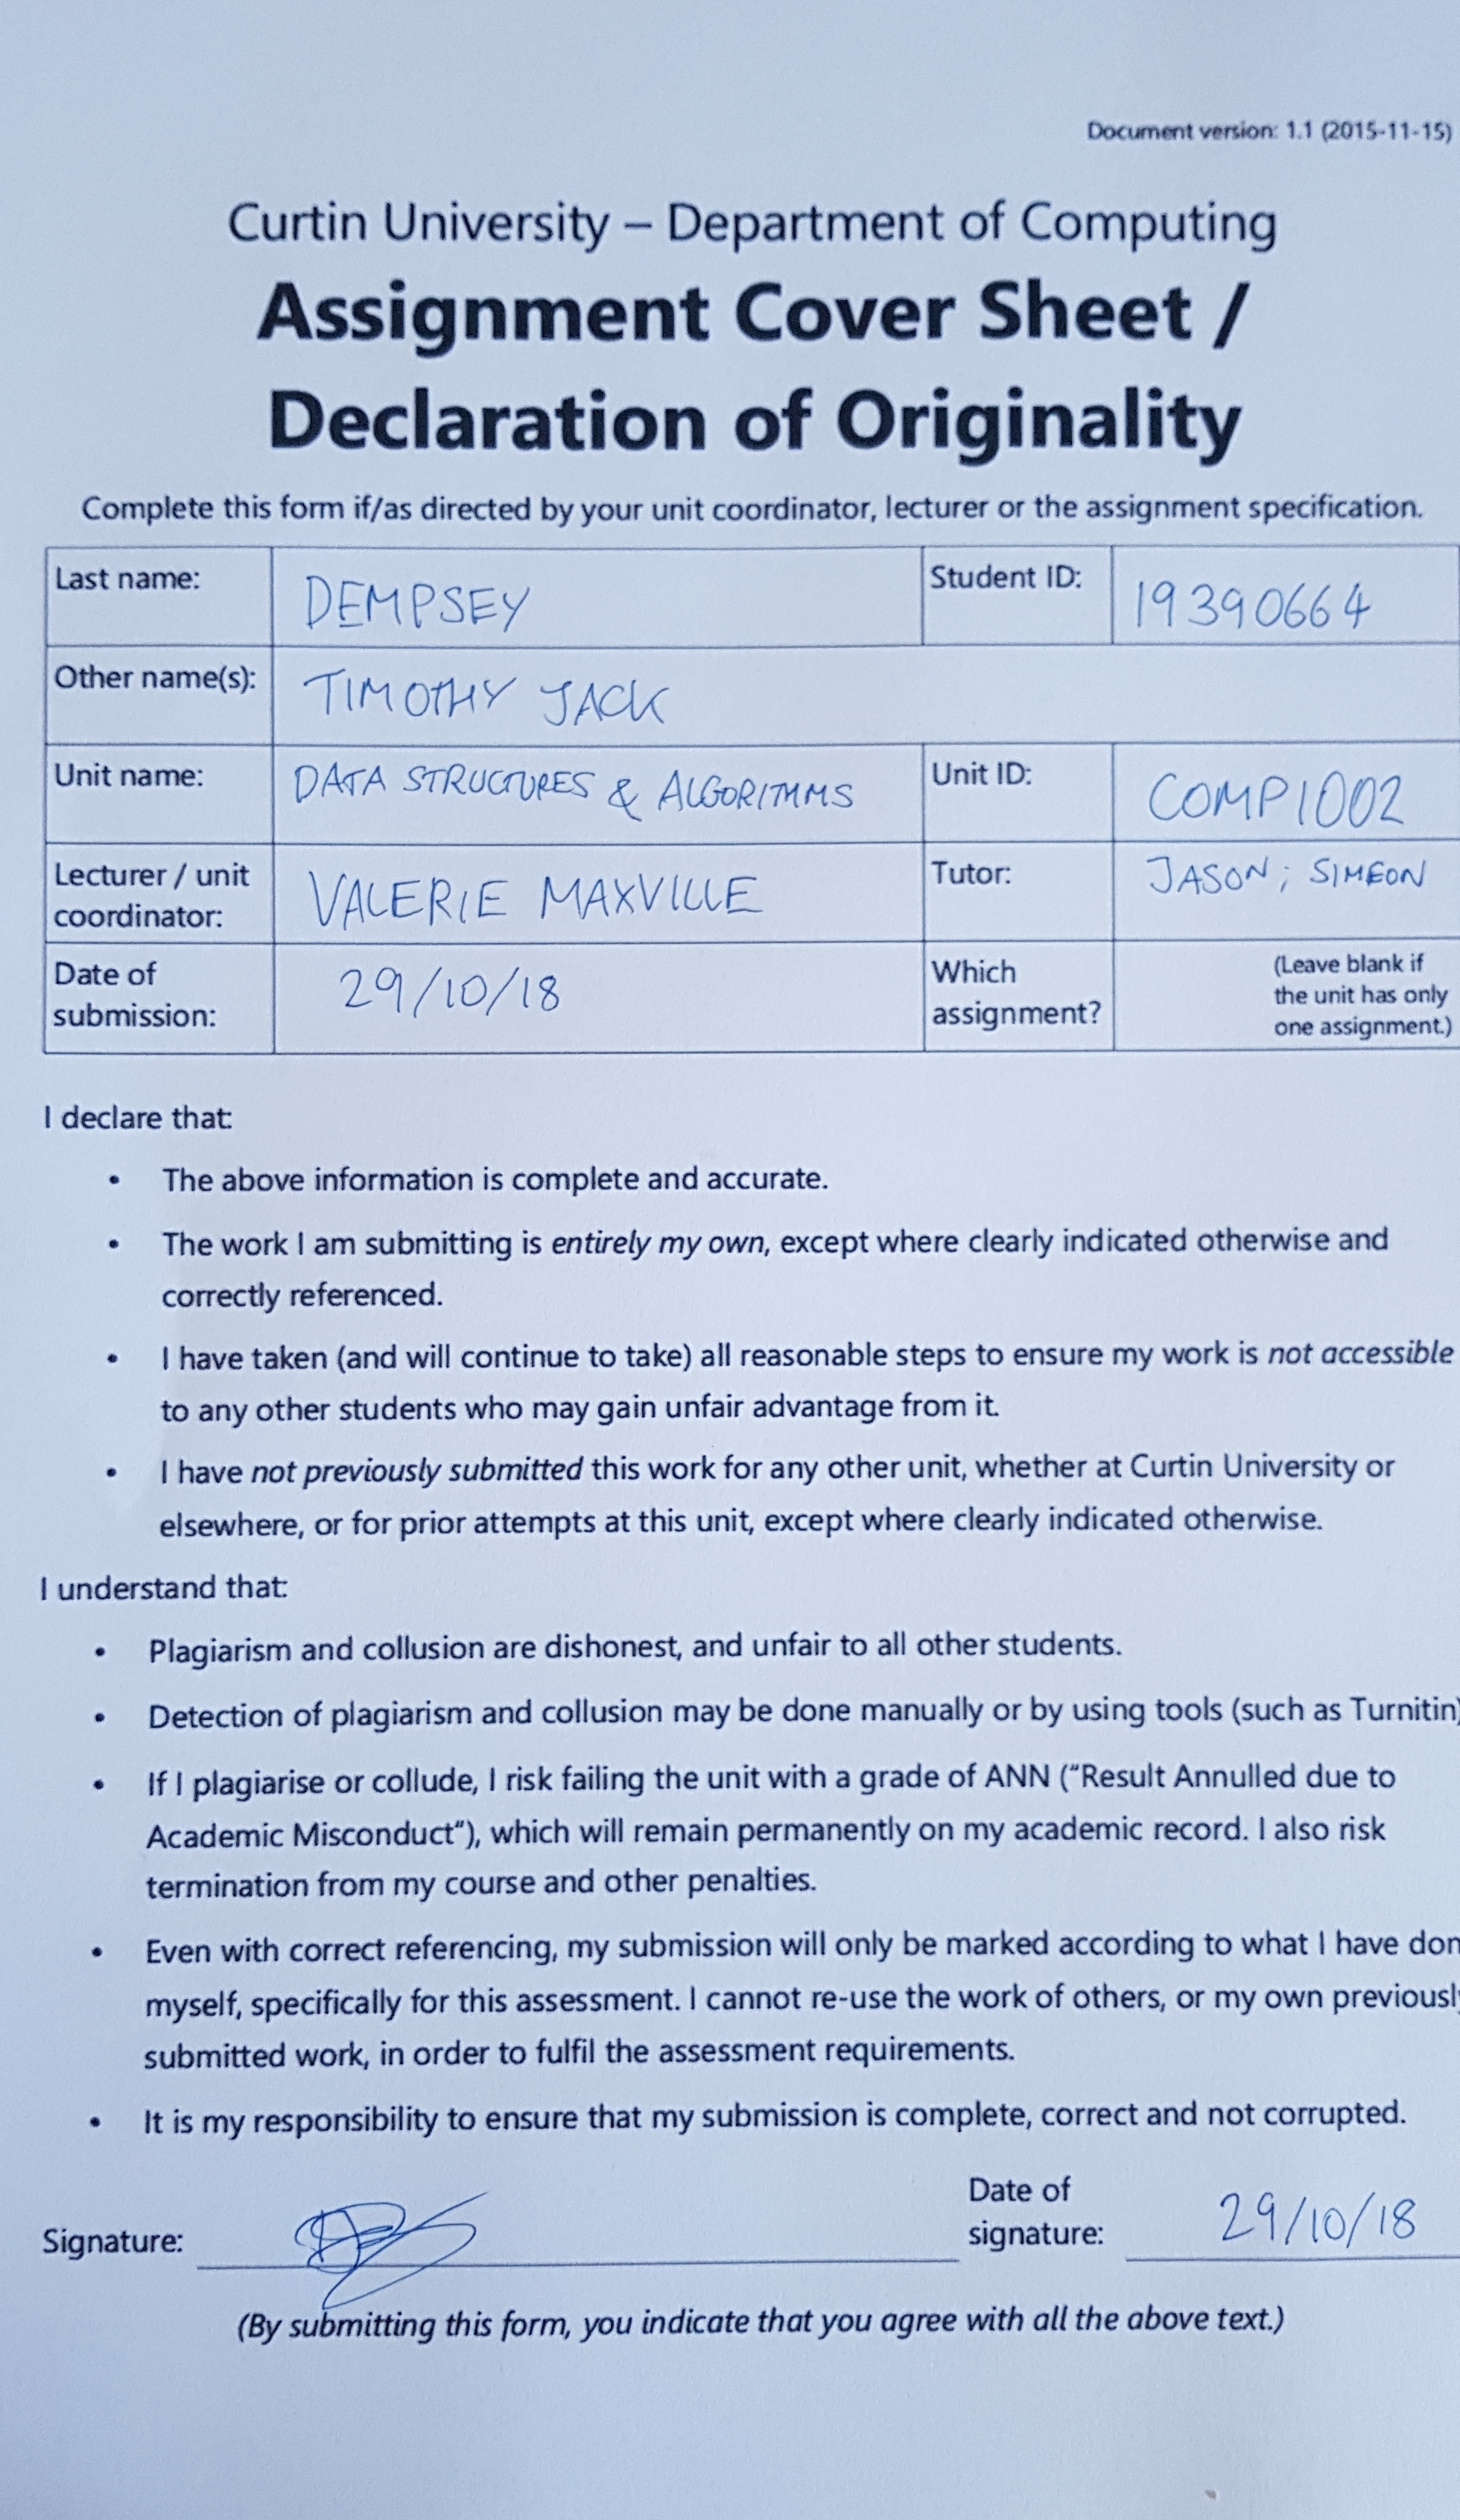 Document version: 1.1 (2015-11-15)
Curtin University – Department of Computing
Assignment Cover Sheet /
Declaration of Originality
Complete this form if/as directed by your unit coordinator, lecturer or the assignment specification.
Last name: DEMPSEY Student ID: 19390664
Other name(s): TIMOTHY JACK
Unit name: DATA STRUCTURES & ALGORITHMS Unit ID: COMP1002
Lecturer / unit coordinator: VALERIE MAXVILLE Tutor: JASON; SIMEON
Date of submission: 29/10/18 Which assignment? (Leave blank if the unit has only one assignment.)
I declare that:
• The above information is complete and accurate.
• The work I am submitting is entirely my own, except where clearly indicated otherwise and
correctly referenced.
• I have taken (and will continue to take) all reasonable steps to ensure my work is not accessible
to any other students who may gain unfair advantage from it.
• I have not previously submitted this work for any other unit, whether at Curtin University or
elsewhere, or for prior attempts at this unit, except where clearly indicated otherwise.
I understand that:
• Plagiarism and collusion are dishonest, and unfair to all other students.
• Detection of plagiarism and collusion may be done manually or by using tools (such as Turnitin)
• If I plagiarise or collude, I risk failing the unit with a grade of ANN (“Result Annulled due to
Academic Misconduct”), which will remain permanently on my academic record. I also risk
termination from my course and other penalties.
• Even with correct referencing, my submission will only be marked according to what I have don
myself, specifically for this assessment. I cannot re-use the work of others, or my own previously
submitted work, in order to fulfil the assessment requirements.
• It is my responsibility to ensure that my submission is complete, correct and not corrupted.
Signature: Date of signature: 29/10/18
(By submitting this form, you indicate that you agree with all the above text.)